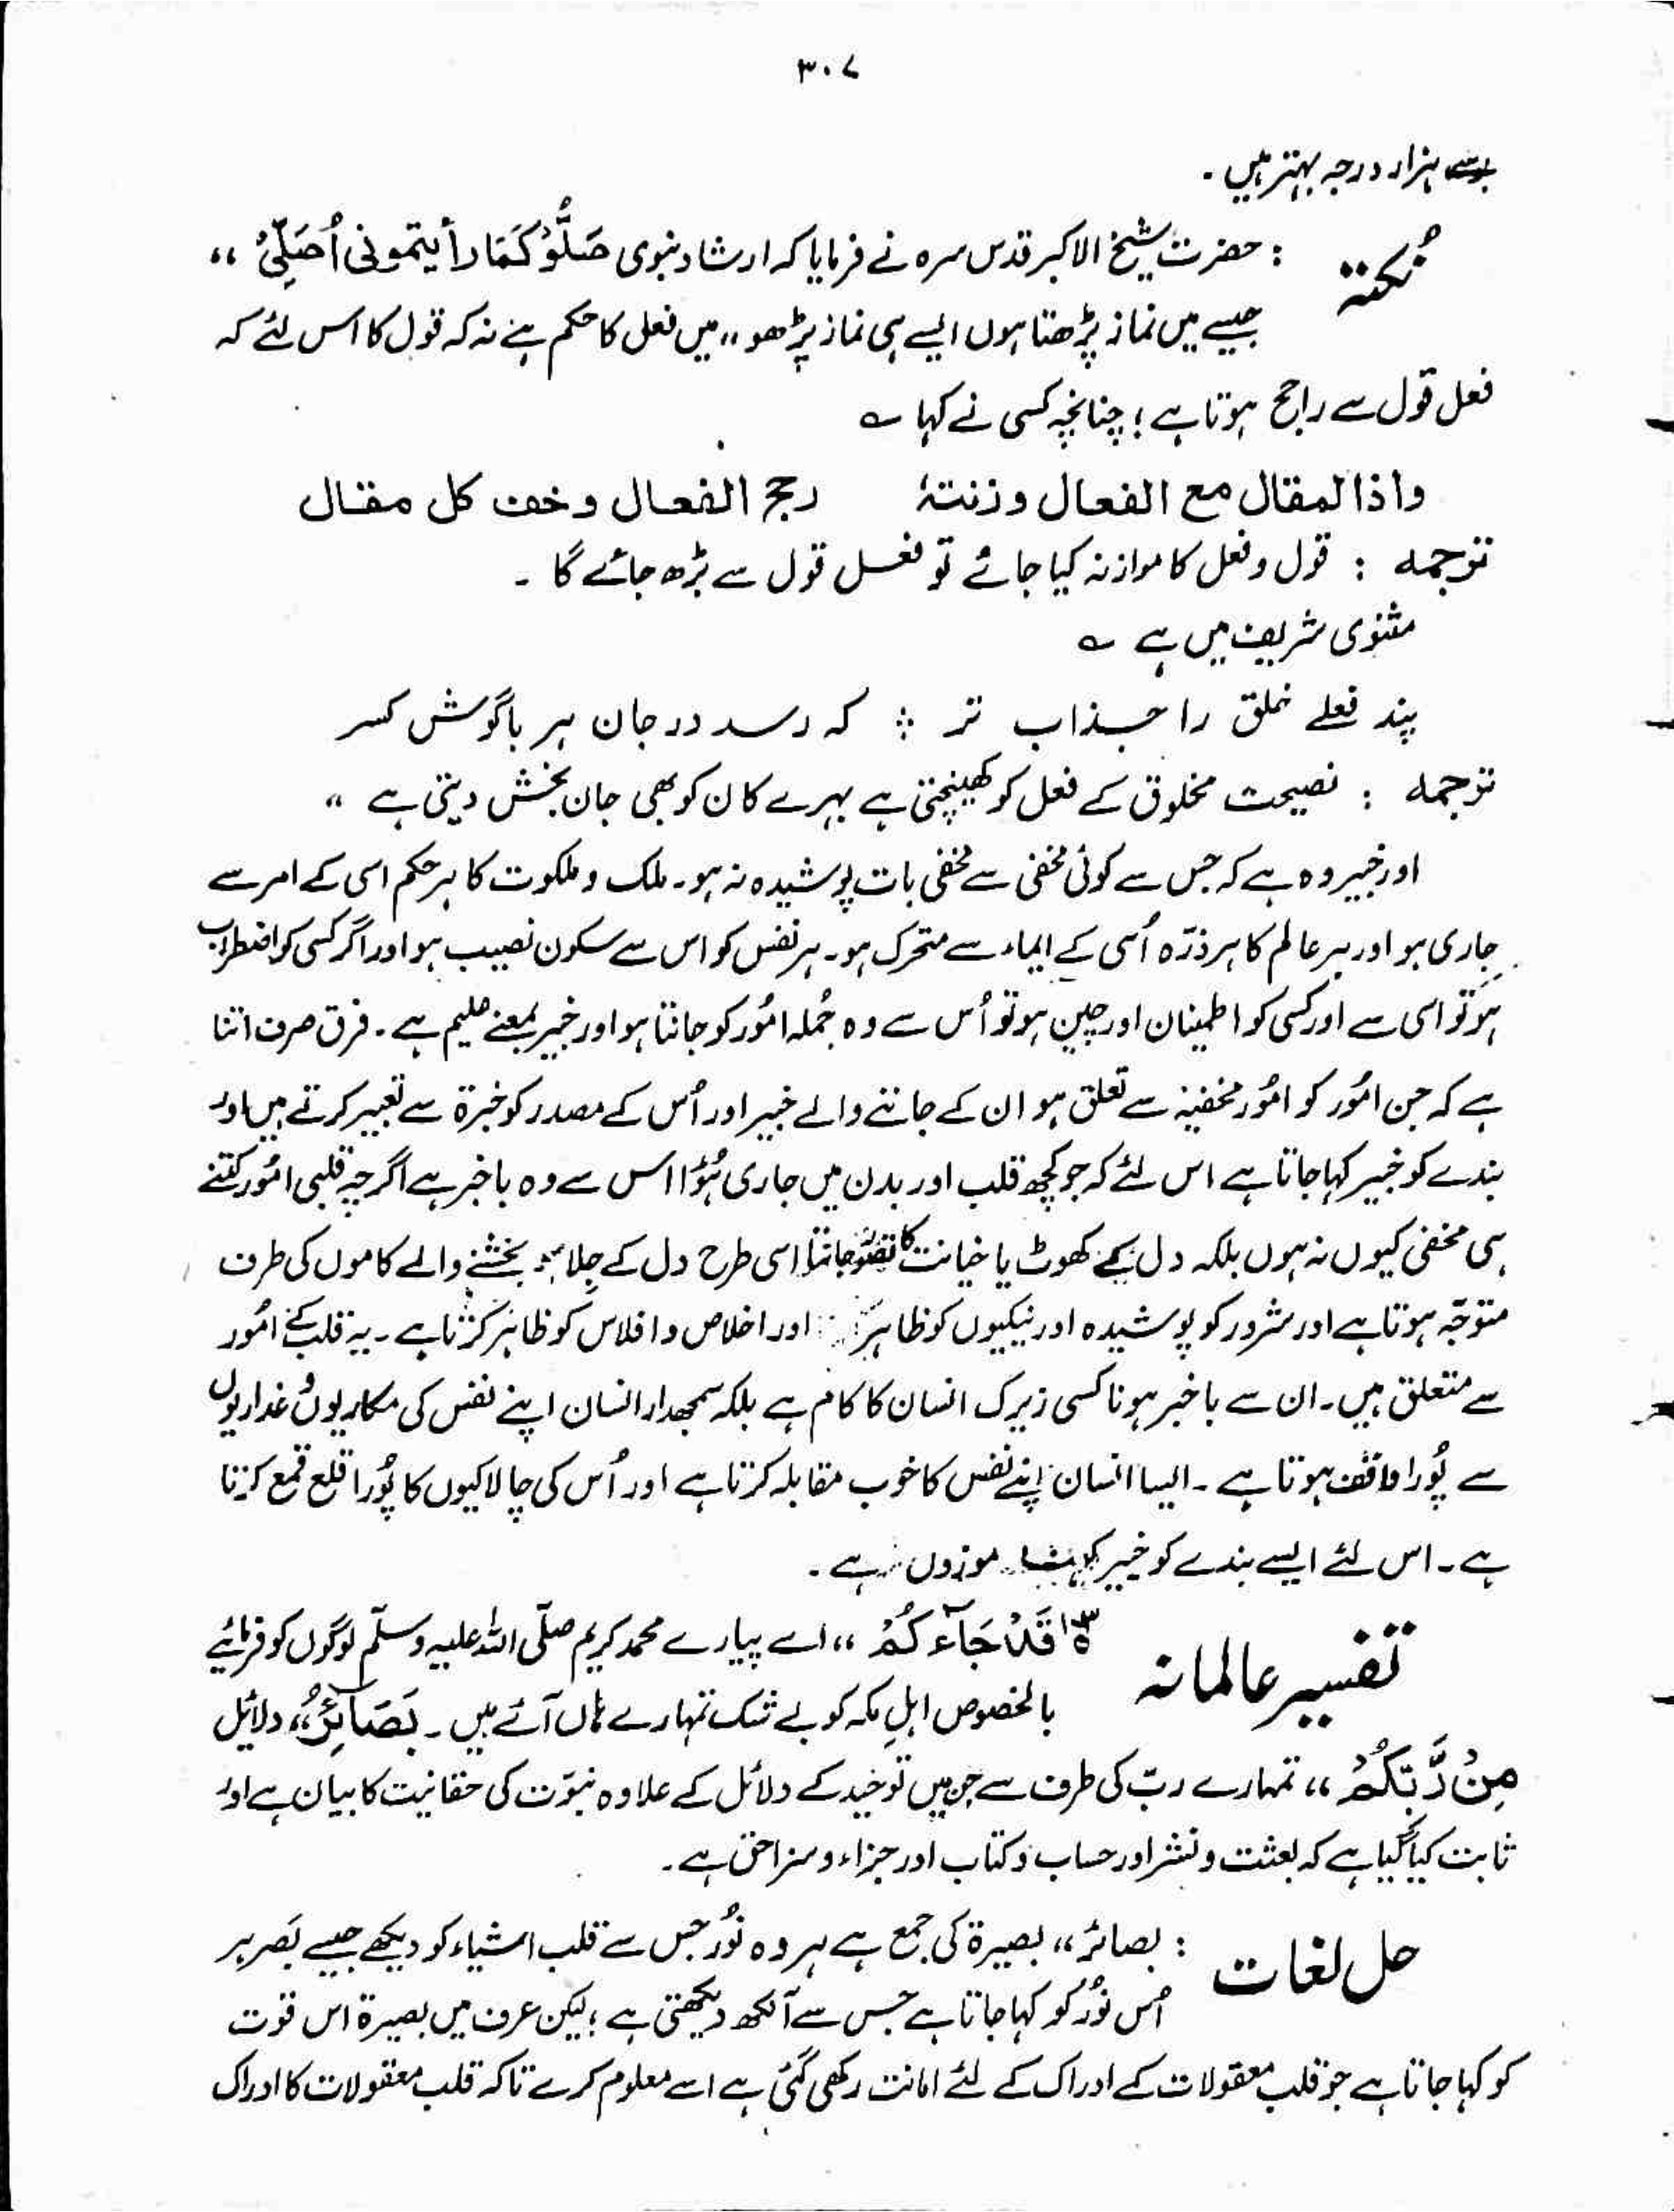 ۳۰۷
سے ہزار درجہ بہتر ہیں۔
نُکتہ : حضرت شیخ الاکبر قدس سرہ نے فرمایا کہ ارشاد نبوی صَلُّوْ کَمَا رأیتمونی اُصَلِّیْ ،،
جیسے میں نماز پڑھتا ہوں ایسے ہی نماز پڑھو ،، میں فعل کا حکم ہے نہ کہ قول کا اس لئے کہ
فعل قول سے راجح ہوتا ہے ؛ چنانچہ کسی نے کہا ؎
واذا لمقال مع الفعال وزنتہٗ رجح الفعال وخف کل مقال
ترجمہ : قول و فعل کا موازنہ کیا جائے تو فعل قول سے بڑھ جائے گا ۔
مثنوی شریف میں ہے ؎
پند فعلے خلق را جذاب تر ؞ کہ رسد در جان ہر باگوش کسر
ترجمہ : نصیحت مخلوق کے فعل کو کھینچتی ہے بہرے کان کو بھی جان بخش دیتی ہے ،،
اور خبیر وہ ہے کہ جس سے کوئی مخفی سے مخفی بات پوشیدہ نہ ہو۔ ملک و ملکوت کا ہر حکم اسی کے امر سے
جاری ہو اور ہر عالم کا ہر ذرّہ اُسی کے ایماء سے متحرک ہو۔ ہر نفس کو اس سے سکون نصیب ہو اور اگر کسی کو اضطراب
ہو تو اسی سے اور کسی کو اطمینان اور چین ہو تو اُس سے وہ جُملہ امُور کو جانتا ہو اور خبیر بمعنے علیم ہے۔ فرق صرف اتنا
ہے کہ جن امُور کو امُور مخفیہ سے تعلق ہو ان کے جاننے والے خبیر اور اُس کے مصدر کو خبرۃ سے تعبیر کرتے ہیں اور
بندے کو خبیر کہا جاتا ہے اس لئے کہ جو کچھ قلب اور بدن میں جاری ہُوا اس سے وہ باخبر ہے اگرچہ قلبی امُور کتنے
ہی مخفی کیوں نہ ہوں بلکہ دل کے کھوٹ یا خیانت کا اسی طرح دل کے جلاء بخشنے والے کاموں کی طرف
متوجّہ ہوتا ہے اور شرور کو پوشیدہ اور نیکیوں کو ظاہر اور اخلاص و افلاس کو ظاہر کرتا ہے۔ یہ قلب کے امُور
سے متعلق ہیں۔ ان سے باخبر ہونا کسی زیرک انسان کا کام ہے بلکہ سمجھدار انسان اپنے نفس کی مکاریوں و غداریوں
سے پُورا واقف ہوتا ہے ۔ ایسا انسان اپنے نفس کا خوب مقابلہ کرتا ہے اور اُس کی چالاکیوں کا پُورا قلع قمع کرتا
ہے۔ اس لئے ایسے بندے کو خبیر کہنا موزوں ہے ۔
تفسیر عالمانہ قَدْ جَآءَکُمْ ،، اے پیارے محمد کریم صلّی اللہ علیہ وسلّم لوگوں کو فرمائیے
بالخصوص اہلِ مکہ کو بے شک تمہارے ہاں آئے ہیں ۔ بَصَآئِرُ ،، دلائل
مِنْ رَّبِّکُمْ ،، تمہارے ربّ کی طرف سے جن میں توحید کے دلائل کے علاوہ نبوّت کی حقانیت کا بیان ہے اور
ثابت کیا گیا ہے کہ بعثت و نشر اور حساب و کتاب اور جزاء و سزا حق ہے ۔
حل لغات : بصائر ،، بصیرۃ کی جمع ہے ہر وہ نُور جس سے قلب اشیاء کو دیکھے جیسے بَصر ہر
اُس نُور کو کہا جاتا ہے جس سے آنکھ دیکھتی ہے ؛ لیکن عرف میں بصیرۃ اس قوت
کو کہا جاتا ہے جو قلب معقولات کے ادراک کے لئے امانت رکھی گئی ہے اسے معلوم کرے تاکہ قلب معقولات کا ادراک